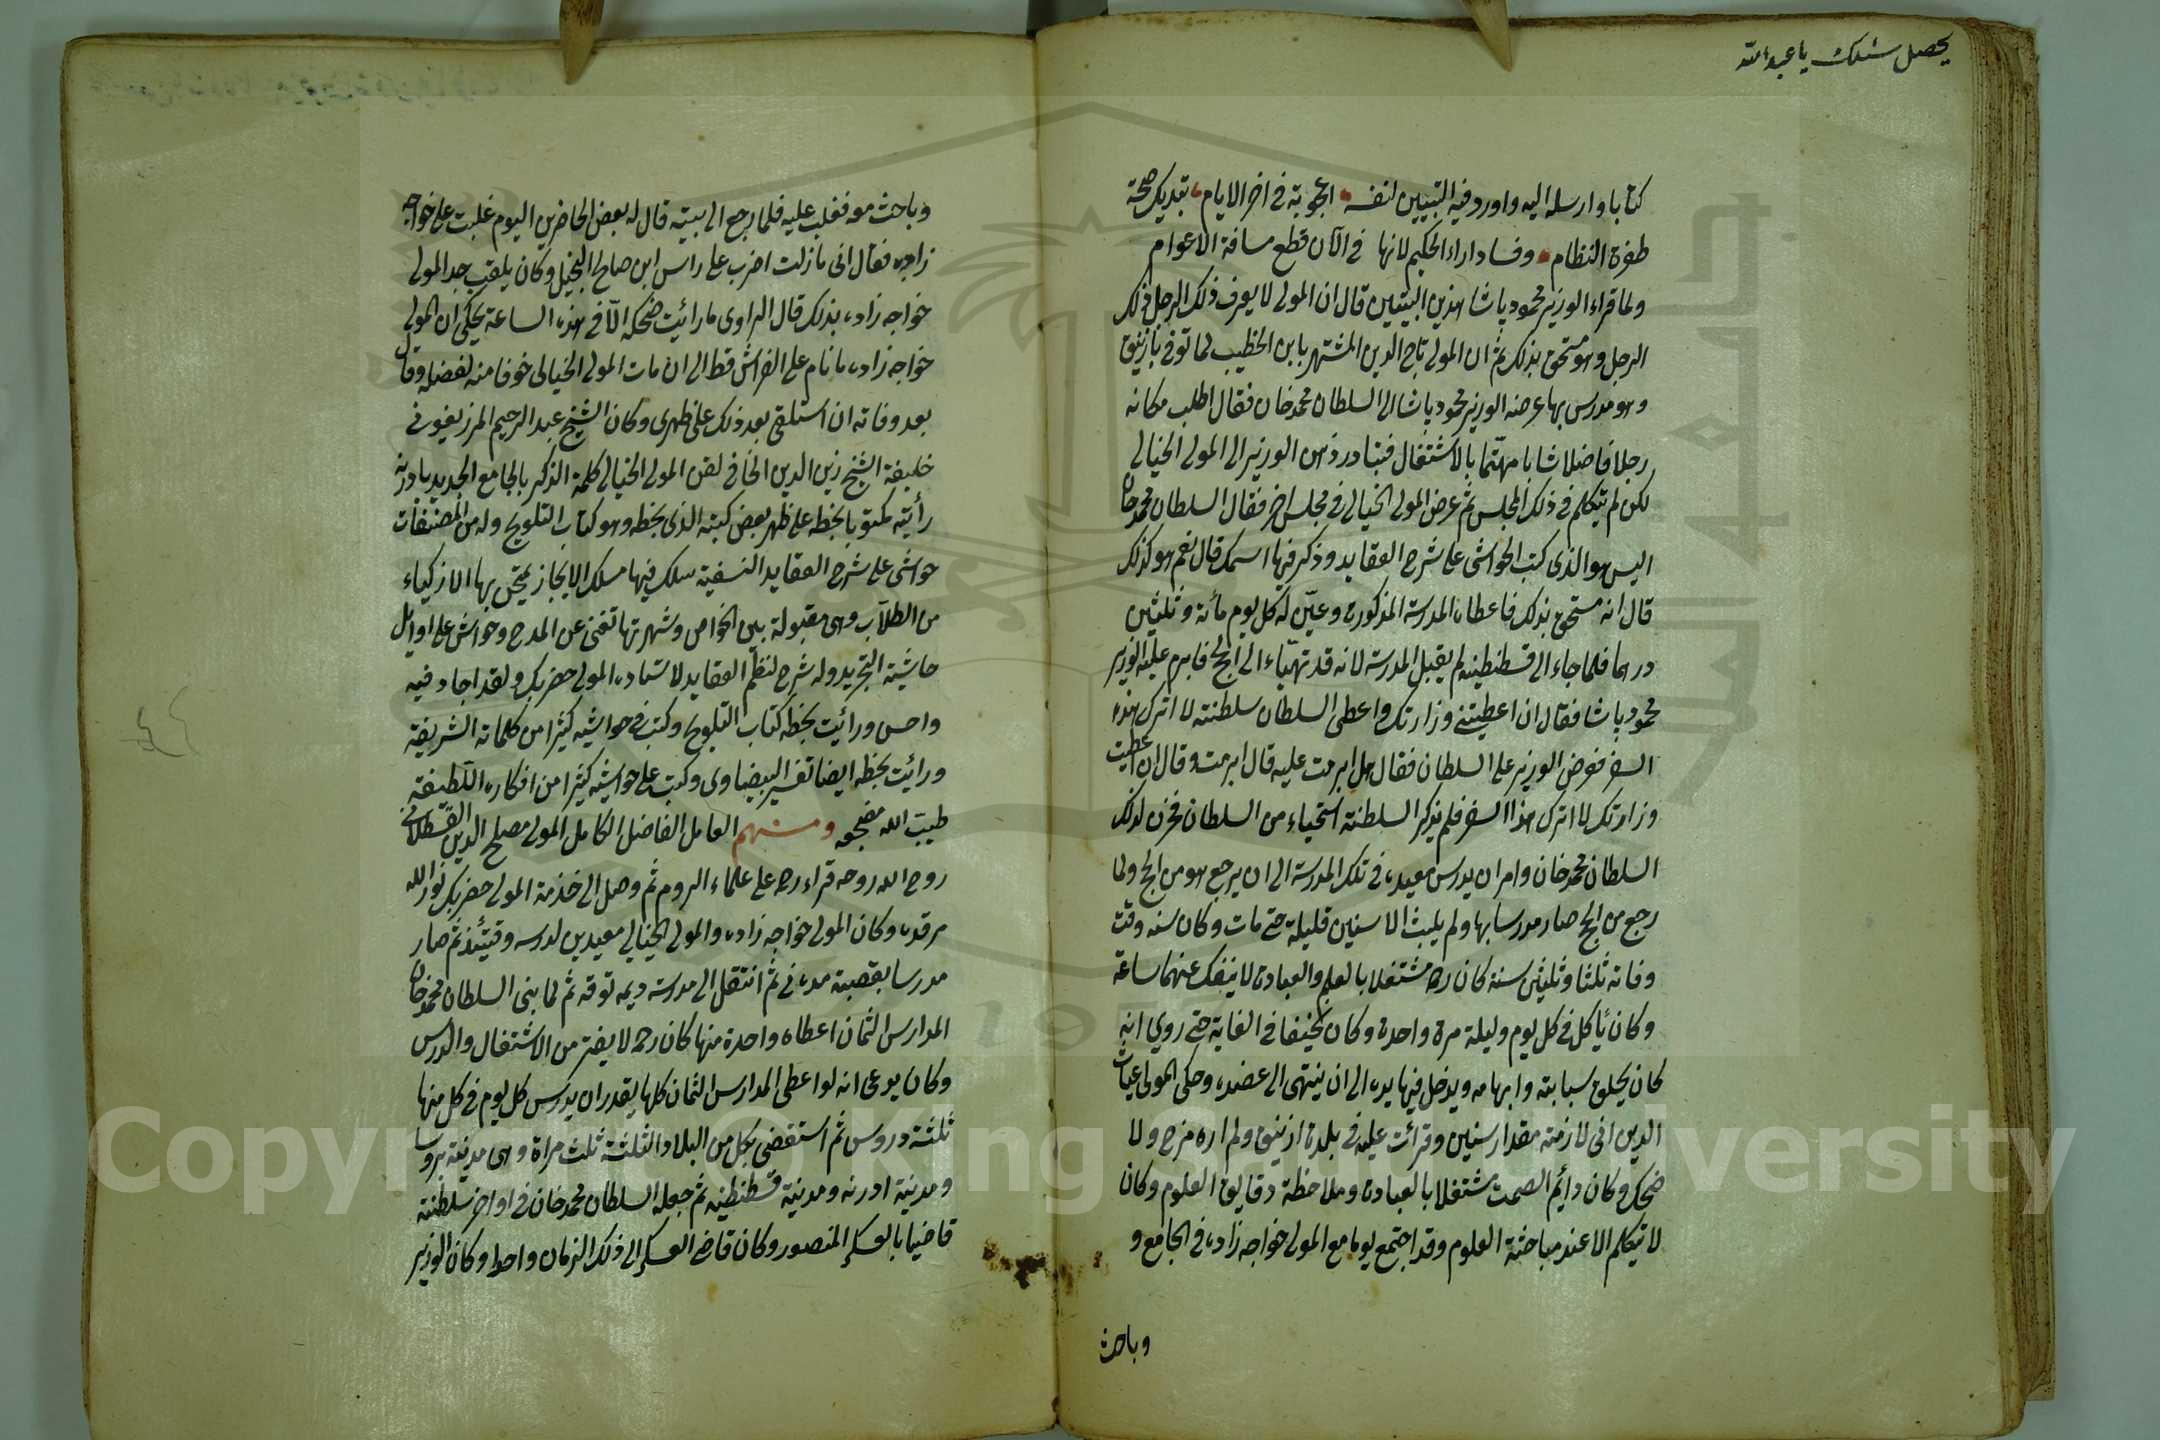 يحصل شلك يا عبد الله
كتابا وارسله اليه واورد فيه البيتين لنفسه اعجوبة في اخر الايام تبديك صحة
طفرة النظام وفساد اراء الحكيم لانها في الآن قطع مسافة الاعوام
ولما قراء الوزير محمود پاشا هذين البيتين قال ان المولى لا يعرف ذلك الرجل ذلك
الرجل وهو مستحق بذلك ثم ان المولى تاج الدين المشتهر بابن الخطيب لما توفي بازنيق
وهو مدرس بها عرضه الوزير محمود پاشا الى السلطان محمد خان فقال اطلب مكانه
رجلا فاضلا شابا مهتما بالاشتغال فتبادر ذهن الوزير الى المولى الخيالي
لكن لم يتكلم في ذلك المجلس ثم عرض المولى الخيالي في مجلس اخر فقال السلطان محمد خان
اليس هو الذي كتب الحواشي على شرح العقايد وذكر فيها اسمك قال نعم هو كذلك
قال انه مستحق بذلك فاعطاه المدرسة المذكورة وعيّن له كل يوم مأئة وثلثين
درهما فلما جاء الى قسطنطينه لم يقبل المدرسة لانه قد تهيّاء الى الحج فابرم عليه الوزير
محمود پاشا فقال ان اعطيتني وزارتك واعطى السلطان سلطنته لا اترك هذه
السفر فعرض الوزير على السلطان فقال هل ابرمت عليه قال ابرمت وقال ان اعطيت
وزارتك لا اترك هذا السفر فلم يذكر السلطنة استحياء من السلطان فحزن لذلك
السلطان محمد خان وامر ان يدرس معيده في تلك المدرسة الى ان يرجع هو من الحج ولما
رجع من الحج صار مدرسا بها ولم يلبث الا سنين قليلة حتى مات وكان سنه وقت
وفاته ثلثا وثلثين سنة كان ره مشتغلا بالعلم والعبادة لا ينفك عنهما ساعة
وكان يأكل في كل يوم وليلة مرة واحدة وكان نحيفا في الغاية حتى روي انه
كان يحلق سبابته وابهامه ويدخل فيها يده الى ان ينتهى الى عضده وحكى المولى غياث
الدين اني لازمته مقدار سنين وقرائت عليه في بلدة ازنيق ولم اره مزح ولا
ضحك وكان دائم الصمت مشتغلا بالعبادة وملاحظة دقايق العلوم وكان
لا يتكلم الا عند مباحثة العلوم وقد اجتمع يوما مع المولى خواجه زاده في الجامع و
وباحث
وباحث معه فغلب عليه فلما رجع الى بيته قال له بعض الحاضرين اليوم غلبت على خواجه
زاده فقال اني ما زلت اضرب على راس ابن صالح البخيل وكان يلقب جد المولى
خواجه زاده بذلك قال الراوى ما رائيت ضحكه الا في هذه الساعة يحكى ان المولى
خواجه زاده ما نام على الفراش قط الى ان مات المولى الخيالي خوفا منه لفضله وقال
بعد وفاته ان استلقى بعد ذلك على ظهرى وكان الشيخ عبد الرحيم المرزيفوني
خليفة الشيخ زين الدين الخافي لقن المولى الخيالي كلمة الذكر بالجامع الجديد بادرنه
رأيته مكتوبا بخطه على ظهر بعض كتبه الذى بخطه وهو كتاب التلويح وله من المصنفات
حواشى على شرح العقايد النسفية سلك فيها مسلك الايجاز يمتحن بها الاذكياء
من الطلاب وهى مقبولة بين الخواص وشهرتها تغنى عن المدح وحواش على اوايل
حاشية التجريد وله شرح لنظم العقايد لاستاده المولى خضر بك ولقد اجاد فيه
واحسن ورائيت بخطه كتاب التلويح وكتب في حواشيه كثيرا من كلماته الشريفة
ورائيت بخطه ايضا تفسير البيضاوى وكتب على حواشيه كثيرا من افكاره اللطيفة
طيب الله مضجعه ومنهم العامل الفاضل الكامل المولى مصلح الدين القسطلاني
روح الله روحه قراء ره على علماء الروم ثم وصل الى خذمة المولى خضر بك نور الله
مرقده وكان المولى خواجه زاده والمولى الخيالي معيدين لدرسه وقتئذ ثم صار
مدرسا بقصبة مدرني ثم انتقل الى مدرسه ديمه توقه ثم لما بنى السلطان محمد خان
المدارس الثمان اعطاه واحدة منها كان ره لا يفتر من الاشتغال والدرس
وكان يدعى انه لو اعطى المدارس الثمان كلها يقدر ان يدرس كل يوم في كل منها
ثلثة دروس ثم استقضى بكل من البلاد الثلثة ثلث مراة وهى مدينة بروسا
ومدينة ادرنه ومدينة قسطنطنيه ثم جعله السلطان محمد خان في اواخر سلطنته
قاضيا بالعسكر المنصور وكان قاضى العسكر الى ذلك الزمان واحدا وكان الوزير
Copyright © King Saud University